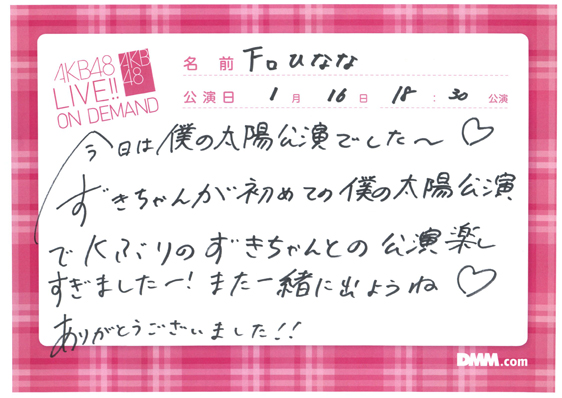 AKB48
LIVE!!
ON DEMAND
AKB
48
名前 下口ひなな
公演日 1月16日 18:30 公演
今日は僕の太陽公演でした〜♡
ずきちゃんが初めての僕の太陽公演
でKぶりのずきちゃんとの公演楽し
すぎましたー!また一緒に出ようね♡
ありがとうございました!!
DMM.com